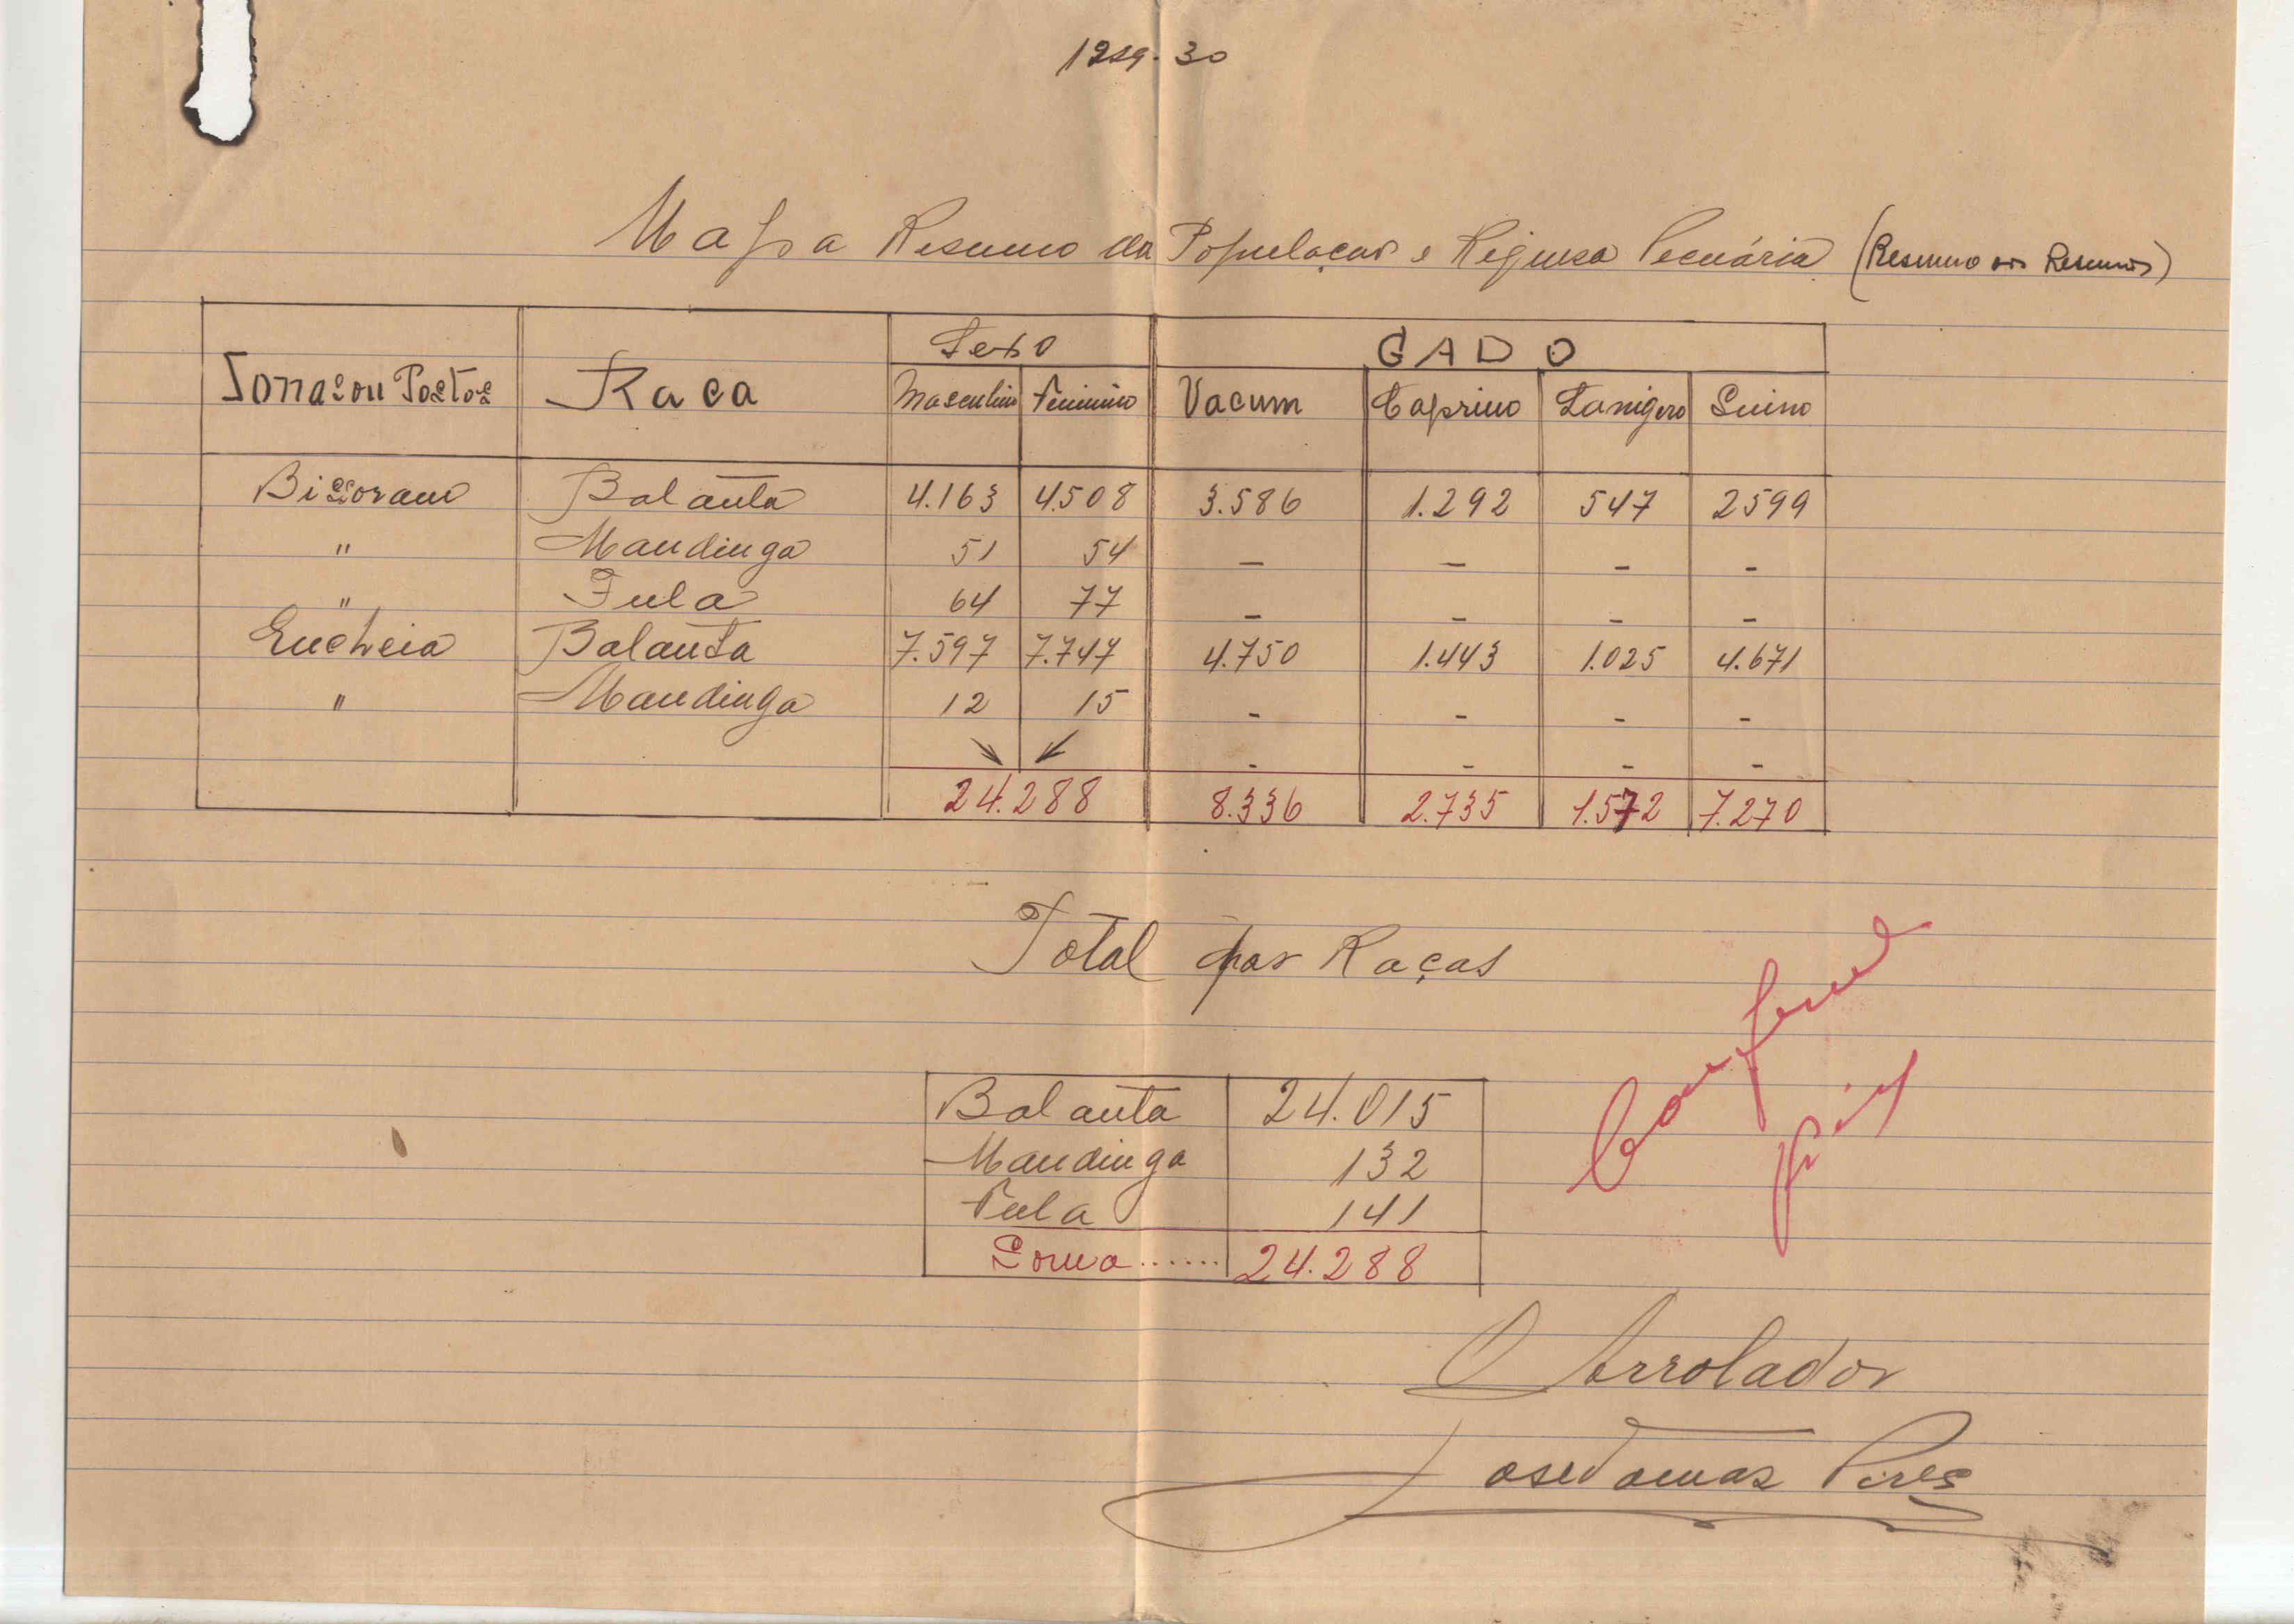 1929-30
Mapa Resumo da População e Riquesa Pecuária (Resumo dos Resumos)
Zonas ou Postos Raca Sexo GADO
Masculino Feminino Vacum Caprino Lanigero Suino
Bissoram Balanta 4.163 4.508 3.586 1.292 547 2599
" Mandinga 51 54 - - - -
" Fula 64 77 - - - -
Encheia Balanta 7.597 7.747 4.750 1.443 1.025 4.671
" Mandinga 12 15 - - - -
- - - -
24.288 8.336 2.735 1.572 7.270
Total por Raças
Balanta 24.015
Mandinga 132
Fula 141
Soma ...... 24.288
Conferi
O Arrolador
José Tomaz Pires